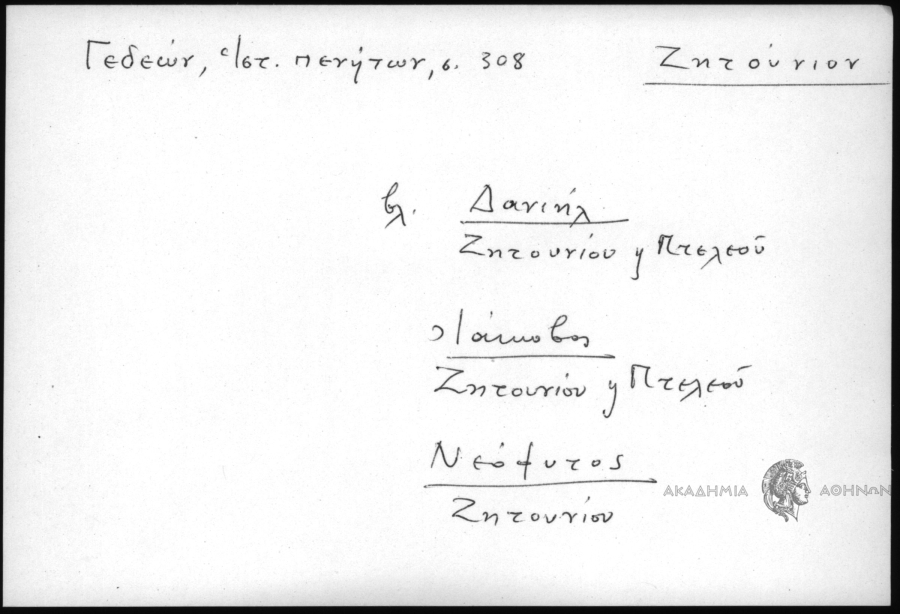 Γεδεών, Ἱστ. πενήτων, σ. 308
Ζητούνιον
βλ. Δανιήλ
Ζητουνίου ἢ Πτελεοῦ
Ἰάκωβος
Ζητουνίου ἢ Πτελεοῦ
Νεόφυτος
Ζητουνίου
ΑΚΑΔΗΜΙΑ ΑΘΗΝΩΝ